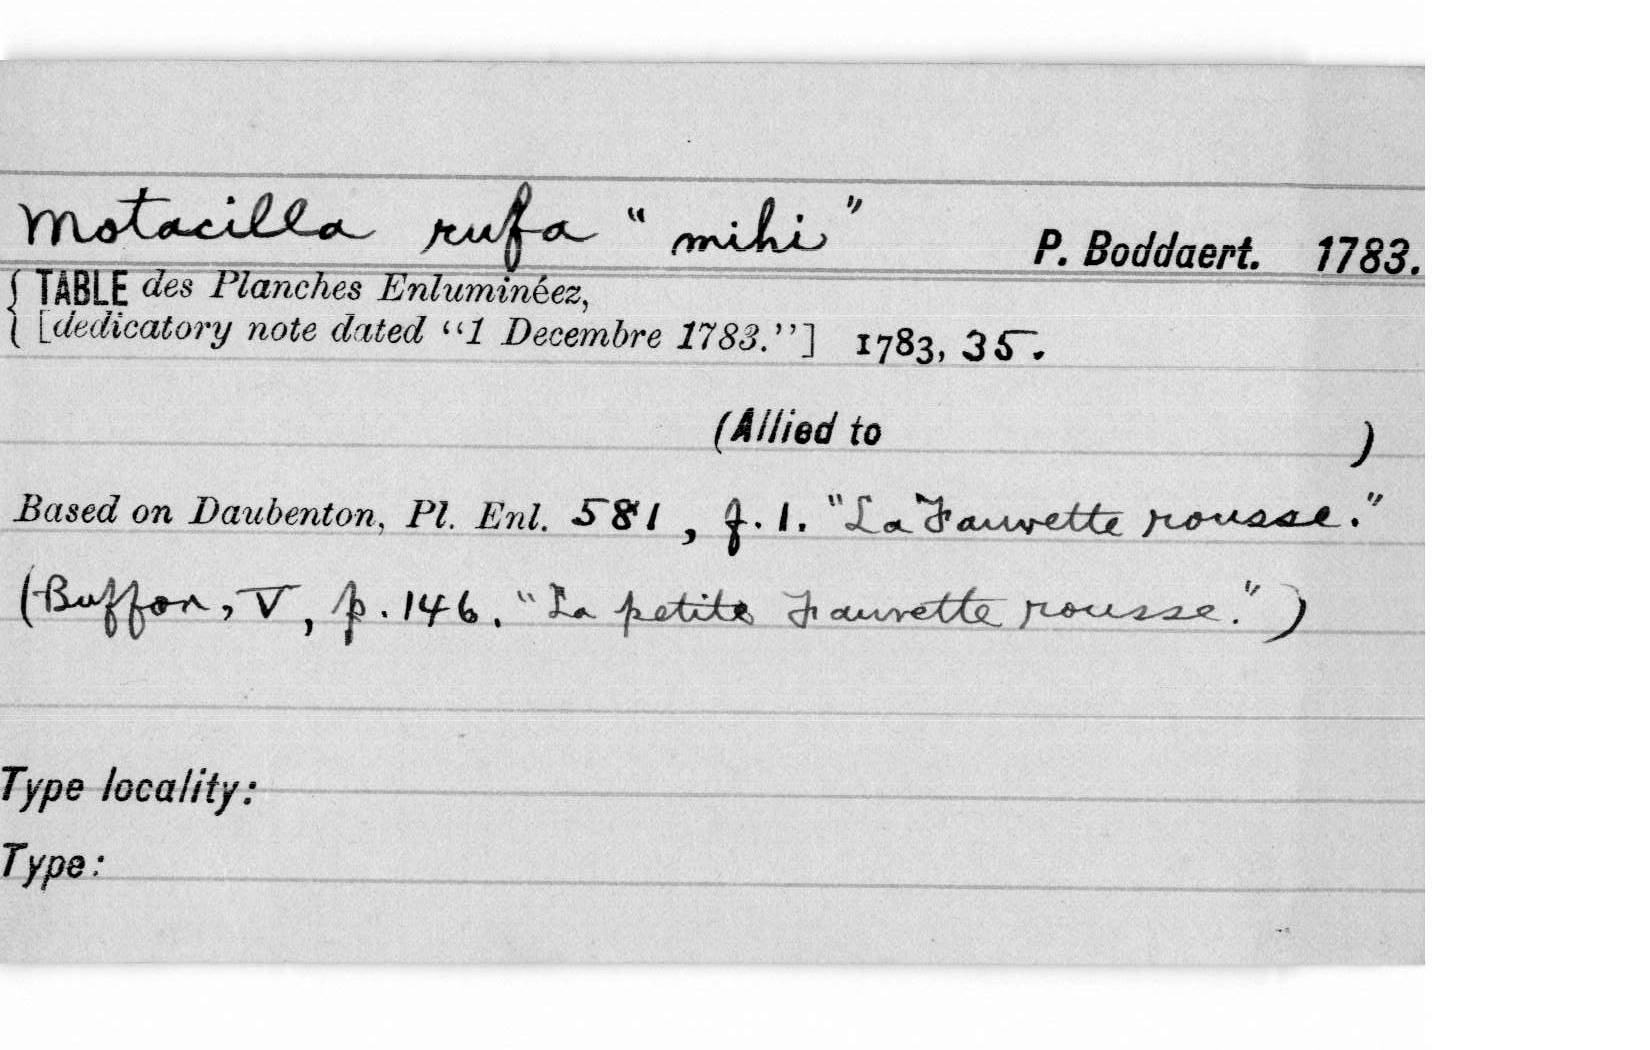 Motacilla rufa "mihi" P. Boddaert. 1783.
{ TABLE des Planches Enluminéez,
[dedicatory note dated "1 Decembre 1783."] 1783, 35.
(Allied to )
Based on Daubenton, Pl. Enl. 581, f. 1. "La Fauvette rousse."
(Buffon, V, p. 146. "La petite Fauvette rousse.")
Type locality:
Type: